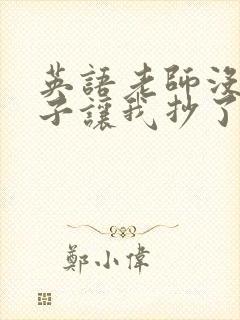 英語老師沒
子讓我抄了
鄭小偉